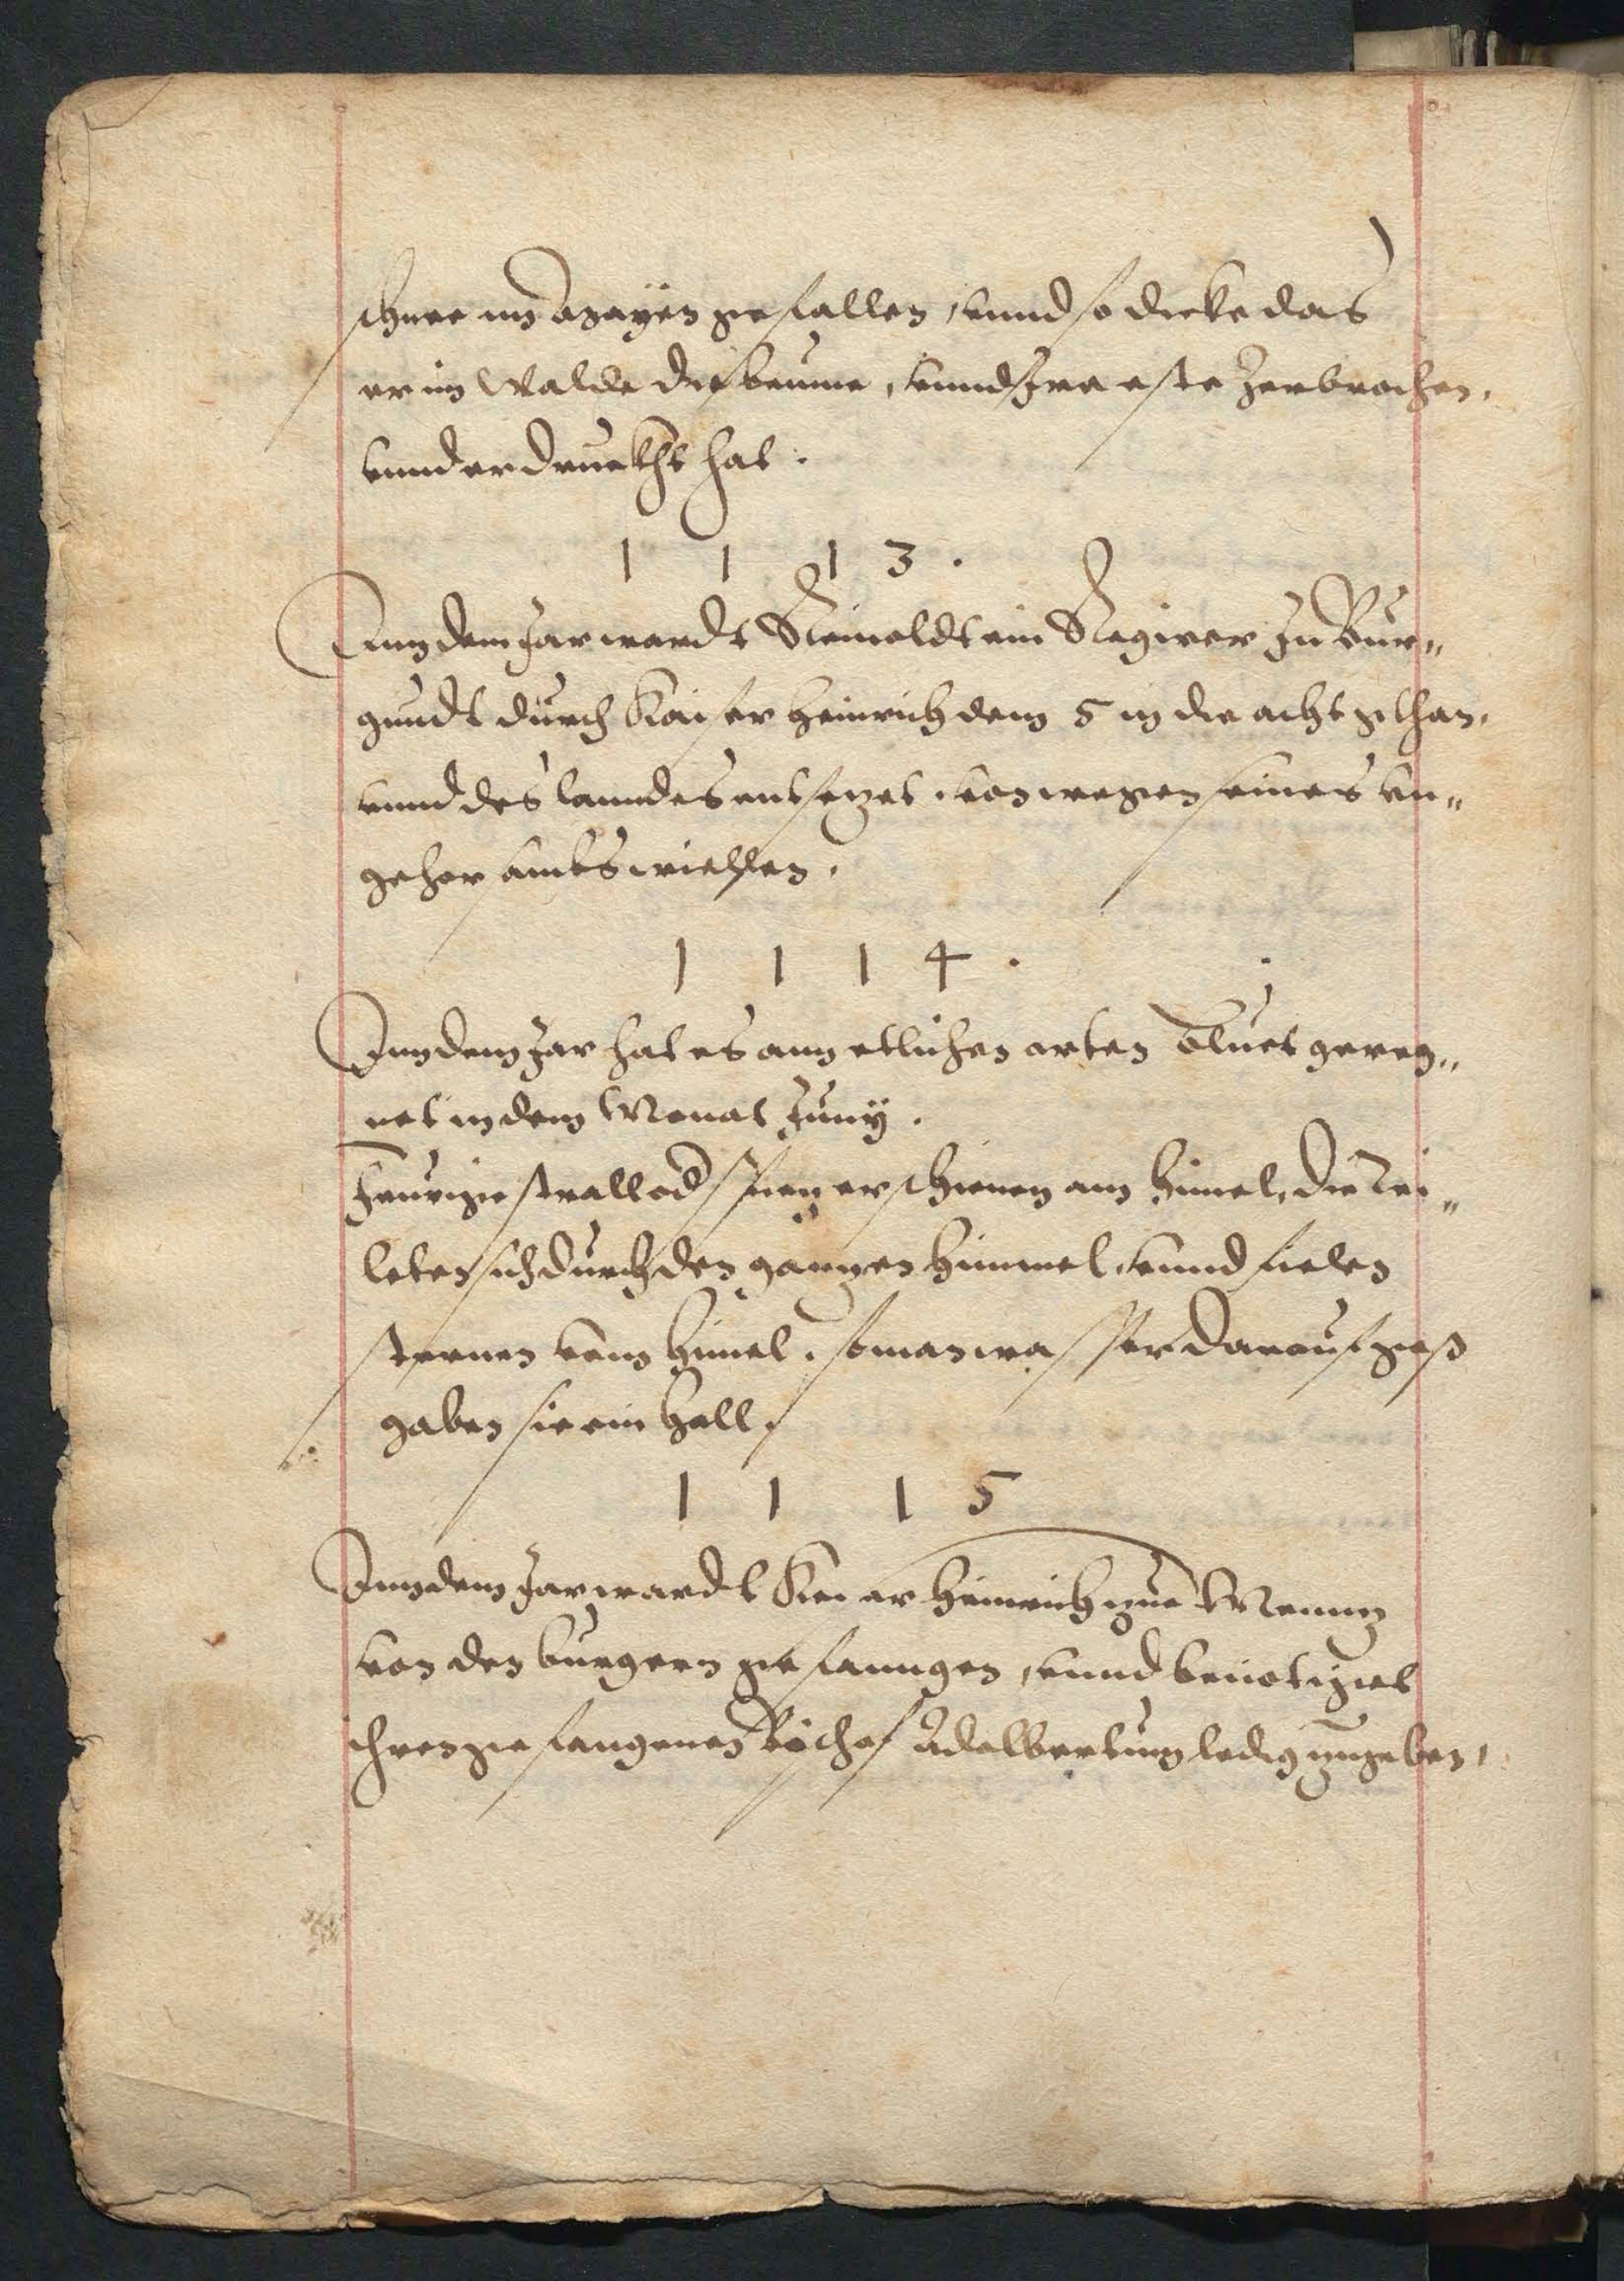 schnee im Mayen gefallen, vnnd so dicke das
er im Walde die beume, vnnd Ire este zerbrochen,
vnnd erdruckht hat.
1 1 1 3.
Inn dem Jar wardt Reinoldt ein Regirer zu Bur„
gundt durch Kaiser Heinrich dem 5 in die acht gethan,
vnnd des lanndes entsetzet, von wegen seines vn„
gehorsambs willen.
1 1 1 4.
Inn dem Jar hat es ann etlichen orten Bluet gereg„
net in dem Monat Juny.
Feurige strall od spien erschienen am himel, die tei„
leten sich durch den gantzen himmel, vnnd fielen
sternen vom himel, so man wasser darauf goß
gaben sie ein hall.
1 1 1 5
Inn dem Jar wardt Keiser Heinrich zue Menntz
von den burgern gefanngen, vnnd benötiget
ihren gefangenen Bischof Adelbertum ledig zugeben,